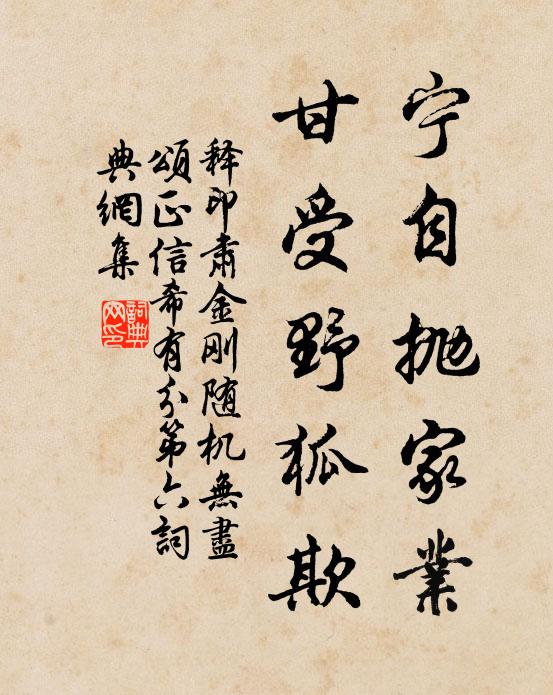 宁自抛家業
甘受野狐欺
释印肃金刚随机無盡
頌正信希有分第六詞
典網集
詞典
网印